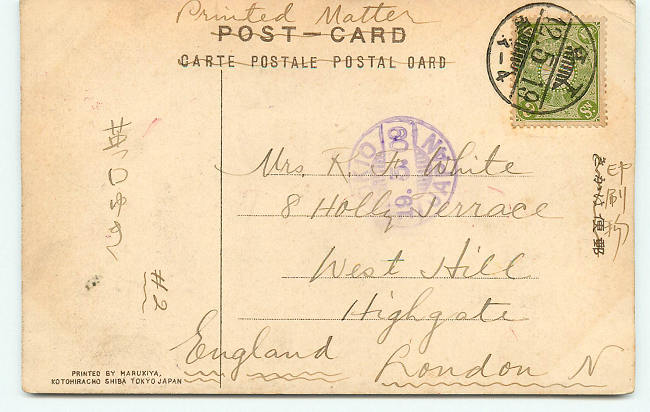 Printed Matter
POST-CARD
CARTE POSTALE POSTAL CARD
12.5.19
Mrs. R. F. White
8 Holly Terrace
West Hill
Highgate
London N
England
英国ゆき
#2
印刷物
郵便はかき
PRINTED BY MARUKIYA,
KOTOHIRACHO SHIBA TOKYO JAPAN